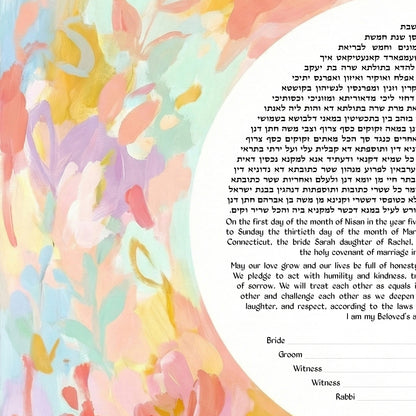 שבת
סן שנת חמשת
מונים וחמש לבריאת
טעמפארד קאנעטיקאט איך
להדא בתולתא שרה בת יעקב
אפלח ואוקיר ואיזון ואפרנס יתיכי
קרין וזנין ומפרנסין לנשיהון בקושטא
דחזי ליכי מדאוריתא ומזוניכי וכסותיכי
את מרת שרה בתולתא דא והות ליה לאנתו
בזהב בין בתכשיטין במאני דלבושא בשמושי
חן במאה זקוקים כסף צרוף וצבי משה חתן דנן
אחרים כנגד סך הכל מאתים זקוקים כסף צרוף
וניא דין ותוספתא דא קבלית עלי ועל ירתי בתראי
כל שמיא דקנאי ודעתיד אנא למקנא נכסין דאית
ערבאין לפרוע מנהון שטר כתובתא דא נדוניא דין
בתר חיי מן יומא דנן ולעלם ואחריות שטר כתובתא
מר כל שטרי כתובות ותוספתות דנהגין בבנת ישראל
לא כטופסי דשטרי וקנינא מן משה בן אברהם חתן דנן
ורש לעיל במנא דכשר למקניא ביה והכל שריר וקים.
On the first day of the month of Nisan in the year five
to Sunday the thirtieth day of the month of Mar
Connecticut, the bride Sarah daughter of Rachel,
the holy covenant of marriage in
May our love grow and our lives be full of honesty
We pledge to act with humility and kindness, tr
of sorrow. We will treat each other as equals i
other and challenge each other as we deepen
laughter, and respect, according to the laws
I am my Beloved's a
Bride
Groom
Witness
Witness
Rabbi